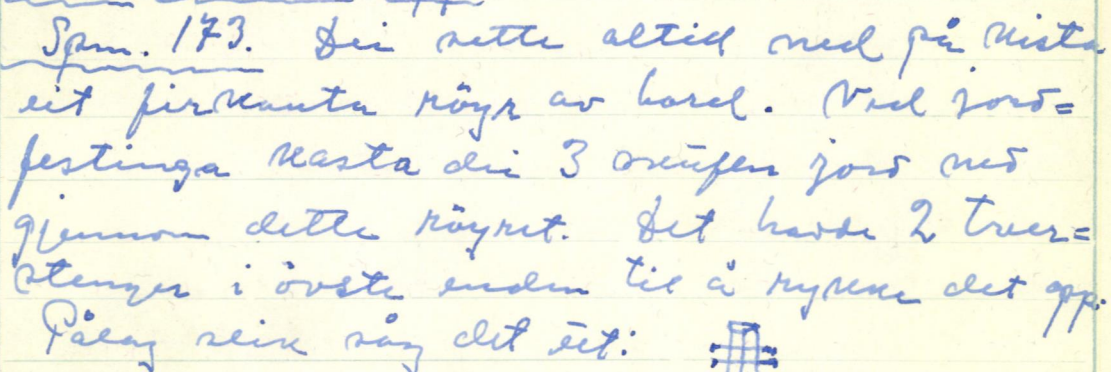 Spm. 173. Dei sette altid ned på kista
eit firkanta röyr av bord. Ved jord=
festinga kasta dei 3 skuffen jord ned
gjennom dette röyret. Det hadde 2 tver=
stenger i övste enden til å rykke det opp.
Pålag slik såg det ut: